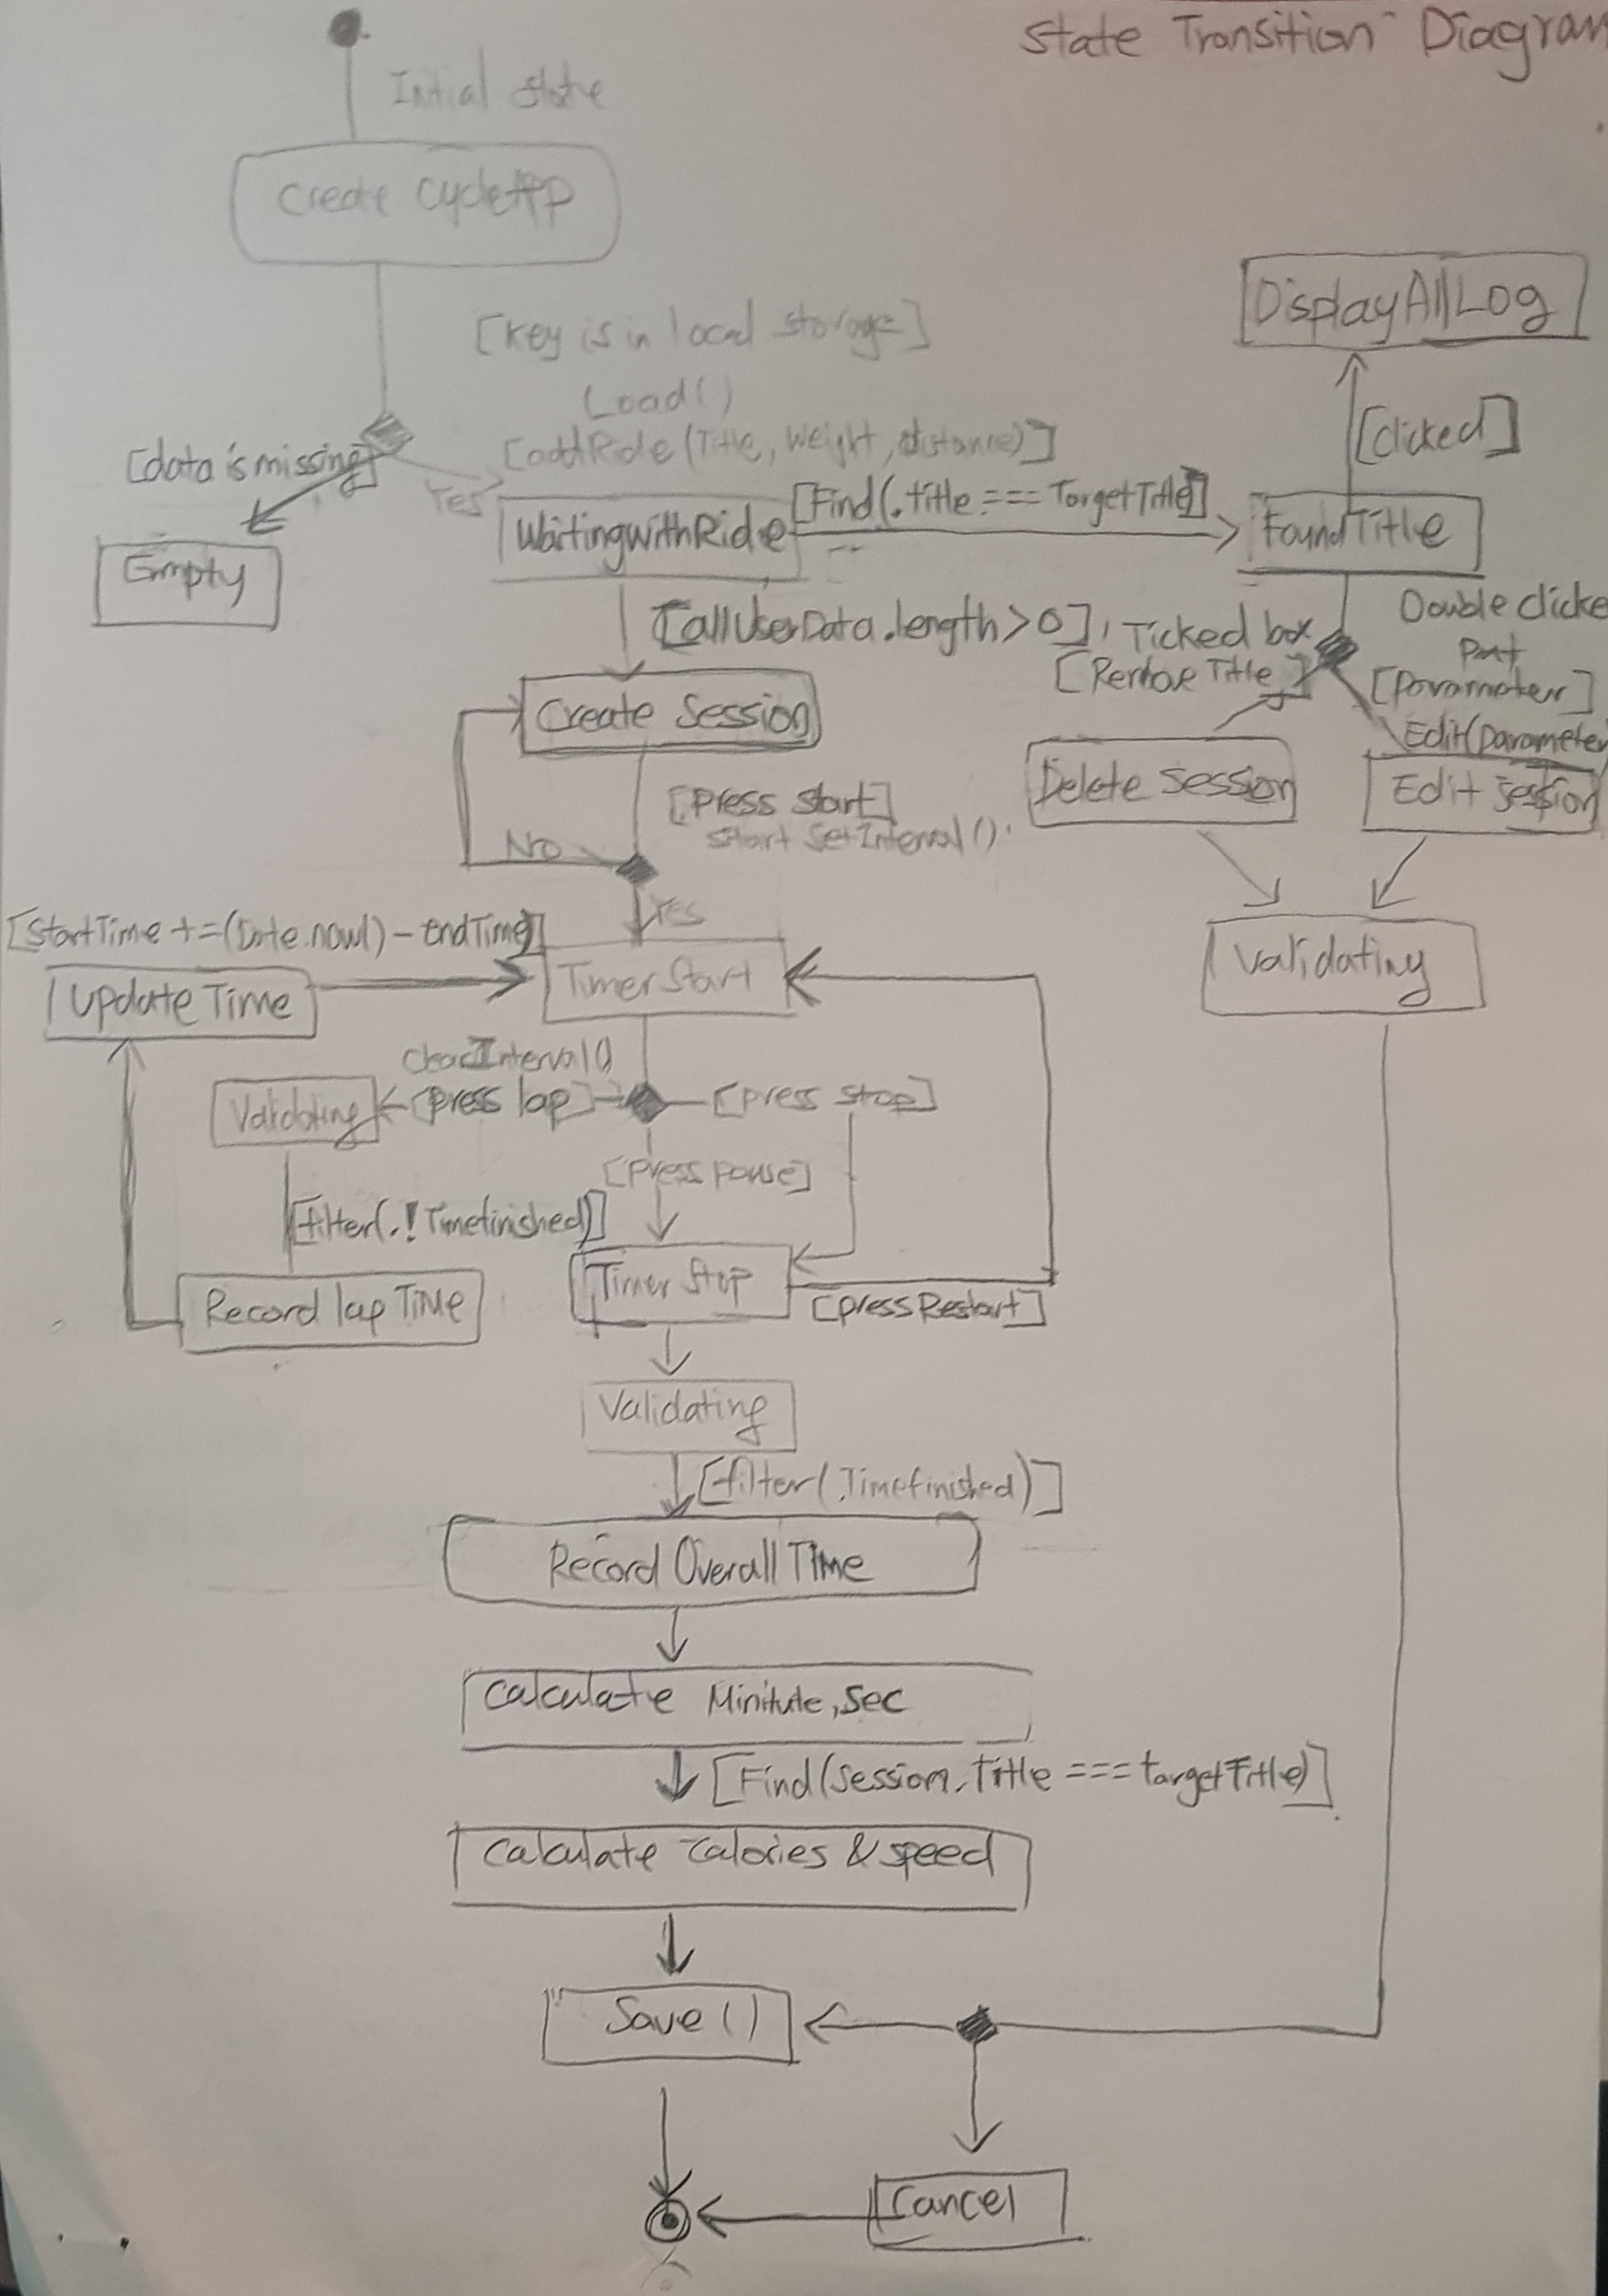 State Transition Diagram
Initial state
Create CycleApp
[Key is in local storage]
Load()
[addRide(Title, Weight, distance)]
[data is missing]
Yes
Empty
WaitingwithRide
[Find(.title === TargetTitle]
FoundTitle
[clicked]
DisplayAllLog
[allUserData.length>0],
Ticked box
[Remove Title]
Double clicke
[parameter]
Edit(parameter
Create Session
Delete Session
Edit Session
[Press Start]
Start SetInterval()
No
Yes
Validating
[StartTime +=(Date.now()-EndTime)]
Update Time
TimerStart
clearInterval()
Validating
[press lap]
[press stop]
[press pause]
[filter(.!Timefinished)]
Record lap Time
Timer Stop
[pressRestart]
Validating
[filter(.Timefinished)]
Record Overall Time
Calculate Minitute,Sec
[Find(Session.Title === targetTitle)]
Calculate Calories & speed
Save()
Cancel